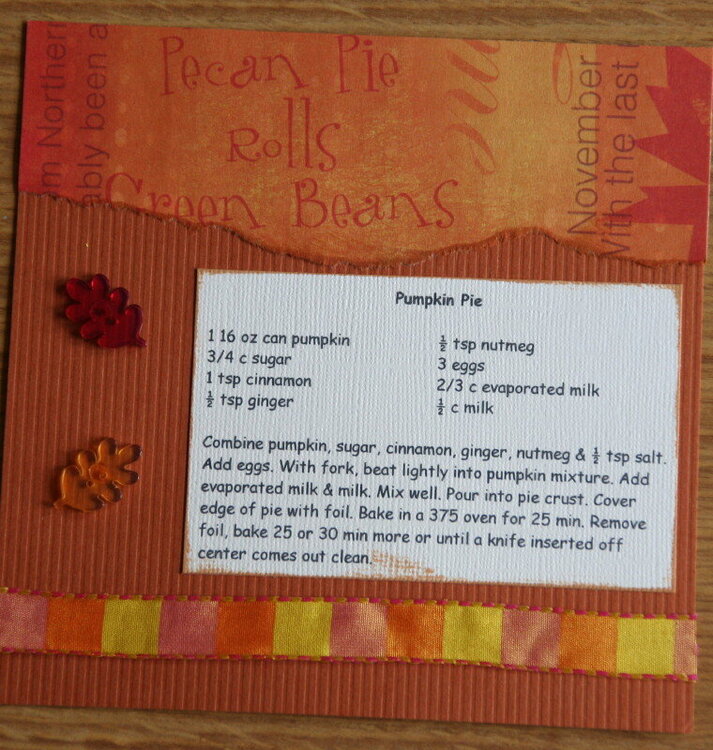 Pecan Pie
Rolls
Green Beans
m Northern
ably been a
November
With the last
Pumpkin Pie
1 16 oz can pumpkin
3/4 c sugar
1 tsp cinnamon
½ tsp ginger
½ tsp nutmeg
3 eggs
2/3 c evaporated milk
½ c milk
Combine pumpkin, sugar, cinnamon, ginger, nutmeg & ½ tsp salt.
Add eggs. With fork, beat lightly into pumpkin mixture. Add
evaporated milk & milk. Mix well. Pour into pie crust. Cover
edge of pie with foil. Bake in a 375 oven for 25 min. Remove
foil, bake 25 or 30 min more or until a knife inserted off
center comes out clean.